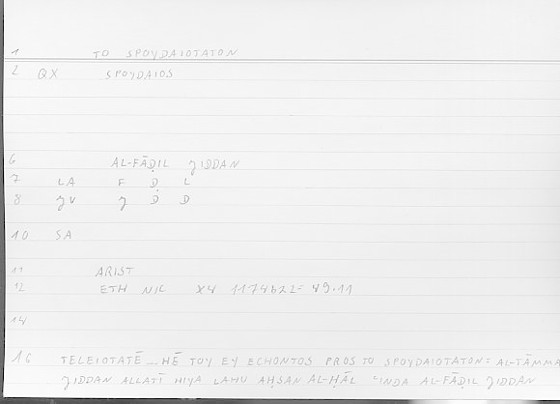 1 TO SPOYDAIOTATON
2 QX SPOYDAIOS
6 AL-FĀḌIL ǦIDDAN
7 LA F Ḍ L
8 ǦV Ǧ D D
10 SA
11 ARIST
12 ETH NIC X4 1174B22= 49.11
14
16 TELEIOTATĒ ... HĒ TOY EY ECHONTOS PROS TO SPOYDAIOTATON= AL-TĀMMA
ǦIDDAN ALLATĪ HIYA LAHU AḤSAN AL-ḤĀL ʿINDA AL-FĀḌIL ǦIDDAN